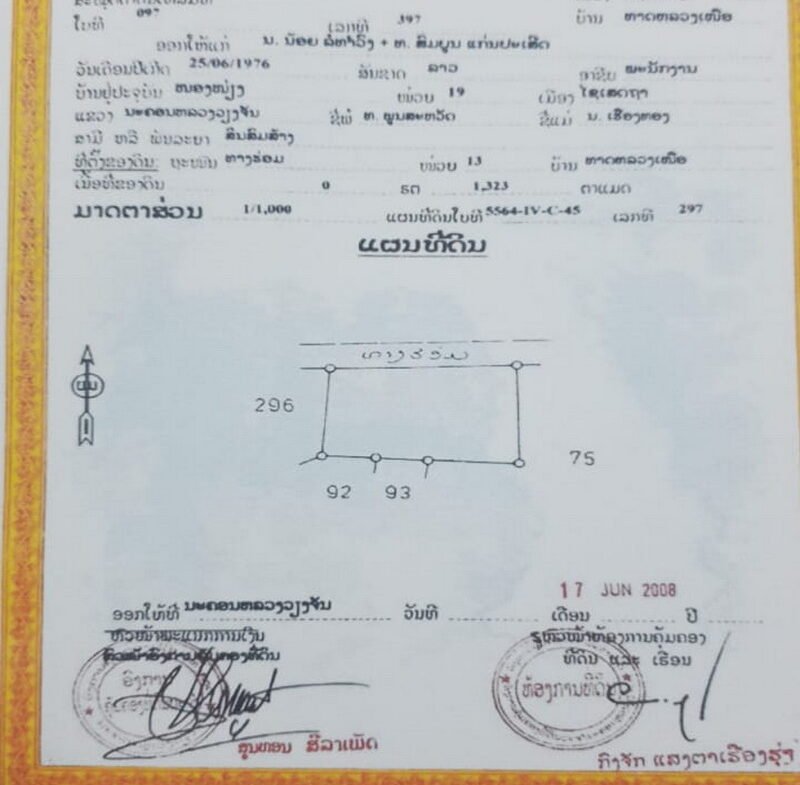 ໃບທີ 097 ເລກທີ 397 ບ້ານ ທາດຫລວງເໜືອ
ອອກໃຫ້ແກ່ ນ. ນ້ອຍ + ທ. ສົມບູນ ແກ່ນປະເສີດ
ວັນເດືອນປີເກີດ 25/06/1976 ສັນຊາດ ລາວ ອາຊີບ ພະນັກງານ
ບ້ານຢູ່ປະຈຸບັນ ໜອງໜ່ຽງ ໜ່ວຍ 19 ເມືອງ ໄຊເສດຖາ
ແຂວງ ນະຄອນຫລວງວຽງຈັນ ຊື່ພໍ່ ທ. ພູນສະຫວັດ ຊື່ແມ່ ນ. ເຮືອງທອງ
ສາມີ ຫລື ພັນລະຍາ ສິນສົມສ້າງ
ທີ່ຕັ້ງຂອງດິນ: ຖະໜົນ ທາງຮ່ອມ ໜ່ວຍ 13 ບ້ານ ທາດຫລວງເໜືອ
ເນື້ອທີ່ຂອງດິນ 0 ຮຕ 1,323 ຕາແມດ
ມາດຕາສ່ວນ 1/1,000 ແຜນທີ່ດິນໃບທີ 5564-IV-C-45 ເລກທີ 297
ແຜນທີ່ດິນ
ທາງຮ່ອມ
296
75
92 93
17 JUN 2008
ອອກໃຫ້ທີ່ ນະຄອນຫລວງວຽງຈັນ ວັນທີ ເດືອນ ປີ
ຫົວໜ້າພະແນກການເງິນ ຮຫົວໜ້າຫ້ອງການຄຸ້ມຄອງ
ທີ່ດິນ ແລະ ເຮືອນ
ຫ້ອງການທີ່ດິນ
ສູນທອນ ສີລາເພັດ
ກິງຈັກ ແສງຕາເຮືອງຮຸ່ງ